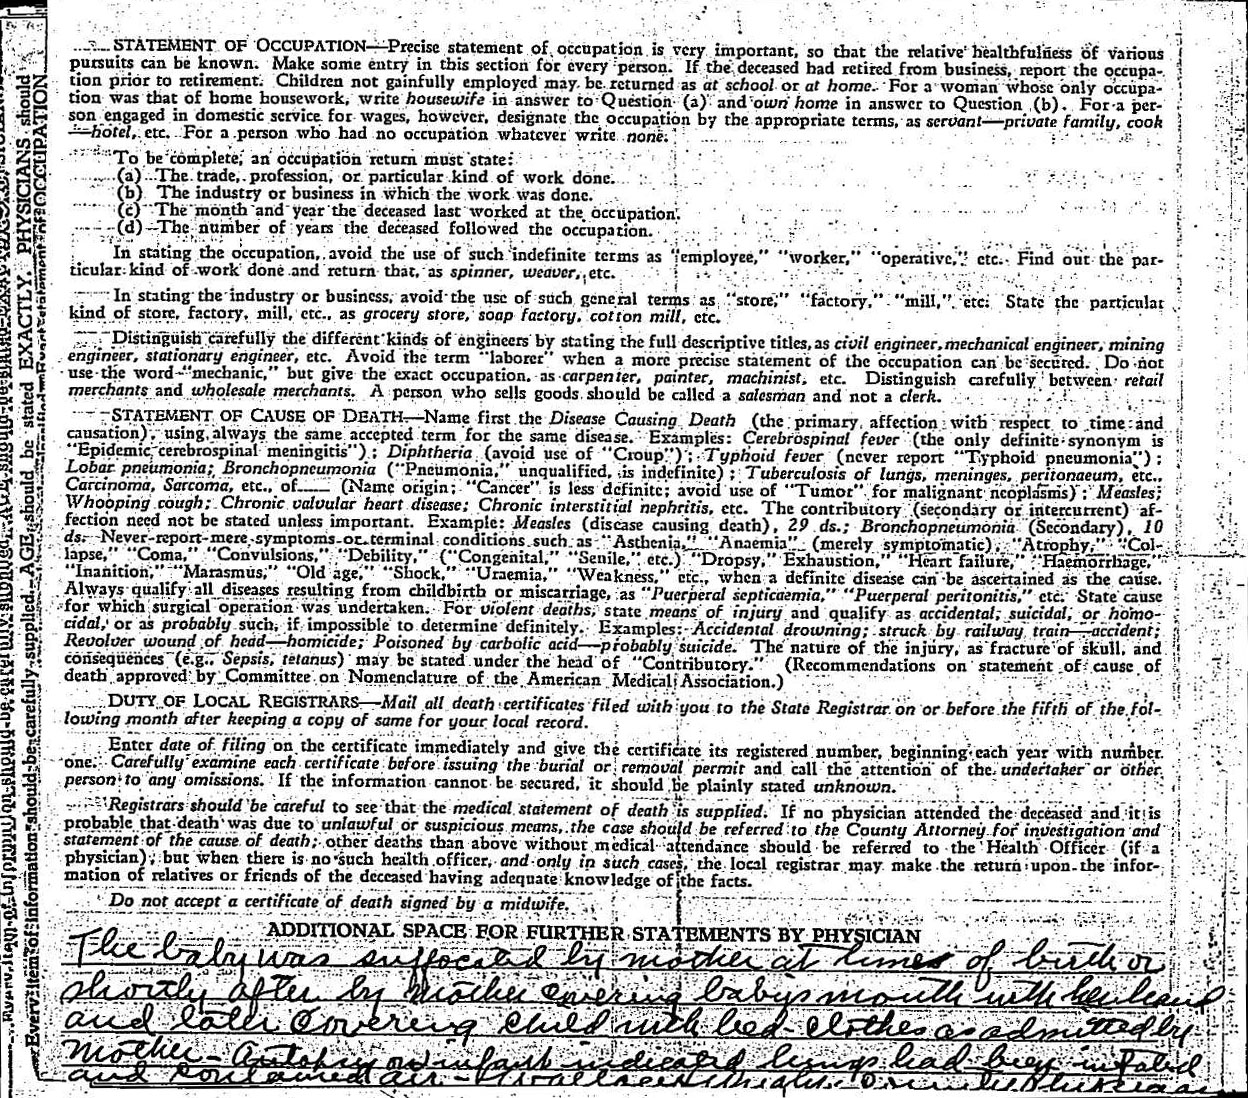 STATEMENT OF OCCUPATION—Precise statement of occupation is very important, so that the relative healthfulness of various
pursuits can be known. Make some entry in this section for every person. If the deceased had retired from business, report the occupa-
tion prior to retirement. Children not gainfully employed may be returned as at school or at home. For a woman whose only occupa-
tion was that of home housework, write housewife in answer to Question (a) and own home in answer to Question (b). For a per-
son engaged in domestic service for wages, however, designate the occupation by the appropriate terms, as servant—private family, cook
—hotel, etc. For a person who had no occupation whatever write none.
To be complete, an occupation return must state:
(a) The trade, profession, or particular kind of work done.
(b) The industry or business in which the work was done.
(c) The month and year the deceased last worked at the occupation.
(d) The number of years the deceased followed the occupation.
In stating the occupation, avoid the use of such indefinite terms as "employee," "worker," "operative," etc. Find out the par-
ticular kind of work done and return that, as spinner, weaver, etc.
In stating the industry or business, avoid the use of such general terms as "store," "factory," "mill," etc. State the particular
kind of store, factory, mill, etc., as grocery store, soap factory, cotton mill, etc.
Distinguish carefully the different kinds of engineers by stating the full descriptive titles, as civil engineer, mechanical engineer, mining
engineer, stationary engineer, etc. Avoid the term "laborer" when a more precise statement of the occupation can be secured. Do not
use the word "mechanic," but give the exact occupation, as carpenter, painter, machinist, etc. Distinguish carefully between retail
merchants and wholesale merchants. A person who sells goods should be called a salesman and not a clerk.
STATEMENT OF CAUSE OF DEATH—Name first the Disease Causing Death (the primary affection with respect to time and
causation), using always the same accepted term for the same disease. Examples: Cerebrospinal fever (the only definite synonym is
"Epidemic cerebrospinal meningitis"); Diphtheria (avoid use of "Croup"); Typhoid fever (never report "Typhoid pneumonia");
Lobar pneumonia; Bronchopneumonia ("Pneumonia," unqualified, is indefinite); Tuberculosis of lungs, meninges, peritonaeum, etc.,
Carcinoma, Sarcoma, etc., of.... (Name origin; "Cancer" is less definite; avoid use of "Tumor" for malignant neoplasms); Measles;
Whooping cough; Chronic valvular heart disease; Chronic interstitial nephritis, etc. The contributory (secondary or intercurrent) af-
fection need not be stated unless important. Example: Measles (disease causing death), 29 ds.; Bronchopneumonia (Secondary), 10
ds. Never report mere symptoms or terminal conditions such as "Asthenia," "Anaemia" (merely symptomatic), "Atrophy," "Col-
lapse," "Coma," "Convulsions," "Debility," ("Congenital," "Senile," etc.) "Dropsy," Exhaustion," "Heart failure," "Haemorrhage,"
"Inanition," "Marasmus," "Old age," "Shock," "Uraemia," "Weakness," etc., when a definite disease can be ascertained as the cause.
Always qualify all diseases resulting from childbirth or miscarriage, as "Puerperal septicaemia," "Puerperal peritonitis," etc. State cause
for which surgical operation was undertaken. For violent deaths, state means of injury and qualify as accidental, suicidal, or homo-
cidal, or as probably such, if impossible to determine definitely. Examples: Accidental drowning; struck by railway train—accident;
Revolver wound of head—homicide; Poisoned by carbolic acid—probably suicide. The nature of the injury, as fracture of skull, and
consequences (e.g., Sepsis, tetanus) may be stated under the head of "Contributory." (Recommendations on statement of cause of
death approved by Committee on Nomenclature of the American Medical Association.)
DUTY OF LOCAL REGISTRARS—Mail all death certificates filed with you to the State Registrar on or before the fifth of the fol-
lowing month after keeping a copy of same for your local record.
Enter date of filing on the certificate immediately and give the certificate its registered number, beginning each year with number
one. Carefully examine each certificate before issuing the burial or removal permit and call the attention of the undertaker or other
person to any omissions. If the information cannot be secured, it should be plainly stated unknown.
Registrars should be careful to see that the medical statement of death is supplied. If no physician attended the deceased and it is
probable that death was due to unlawful or suspicious means, the case should be referred to the County Attorney for investigation and
statement of the cause of death; other deaths than above without medical attendance should be referred to the Health Officer (if a
physician), but when there is no such health officer, and only in such cases, the local registrar may make the return upon the infor-
mation of relatives or friends of the deceased having adequate knowledge of the facts.
Do not accept a certificate of death signed by a midwife.
ADDITIONAL SPACE FOR FURTHER STATEMENTS BY PHYSICIAN
The baby was suffocated by mother at times of birth or
shortly after by mother covering babys mouth with her hand
and later covering child with bed-clothes as admitted by
mother - Autopsy on infant indicated lungs had been inflated
and contained air -
Every item of information should be carefully supplied. AGE should be stated EXACTLY. PHYSICIANS should